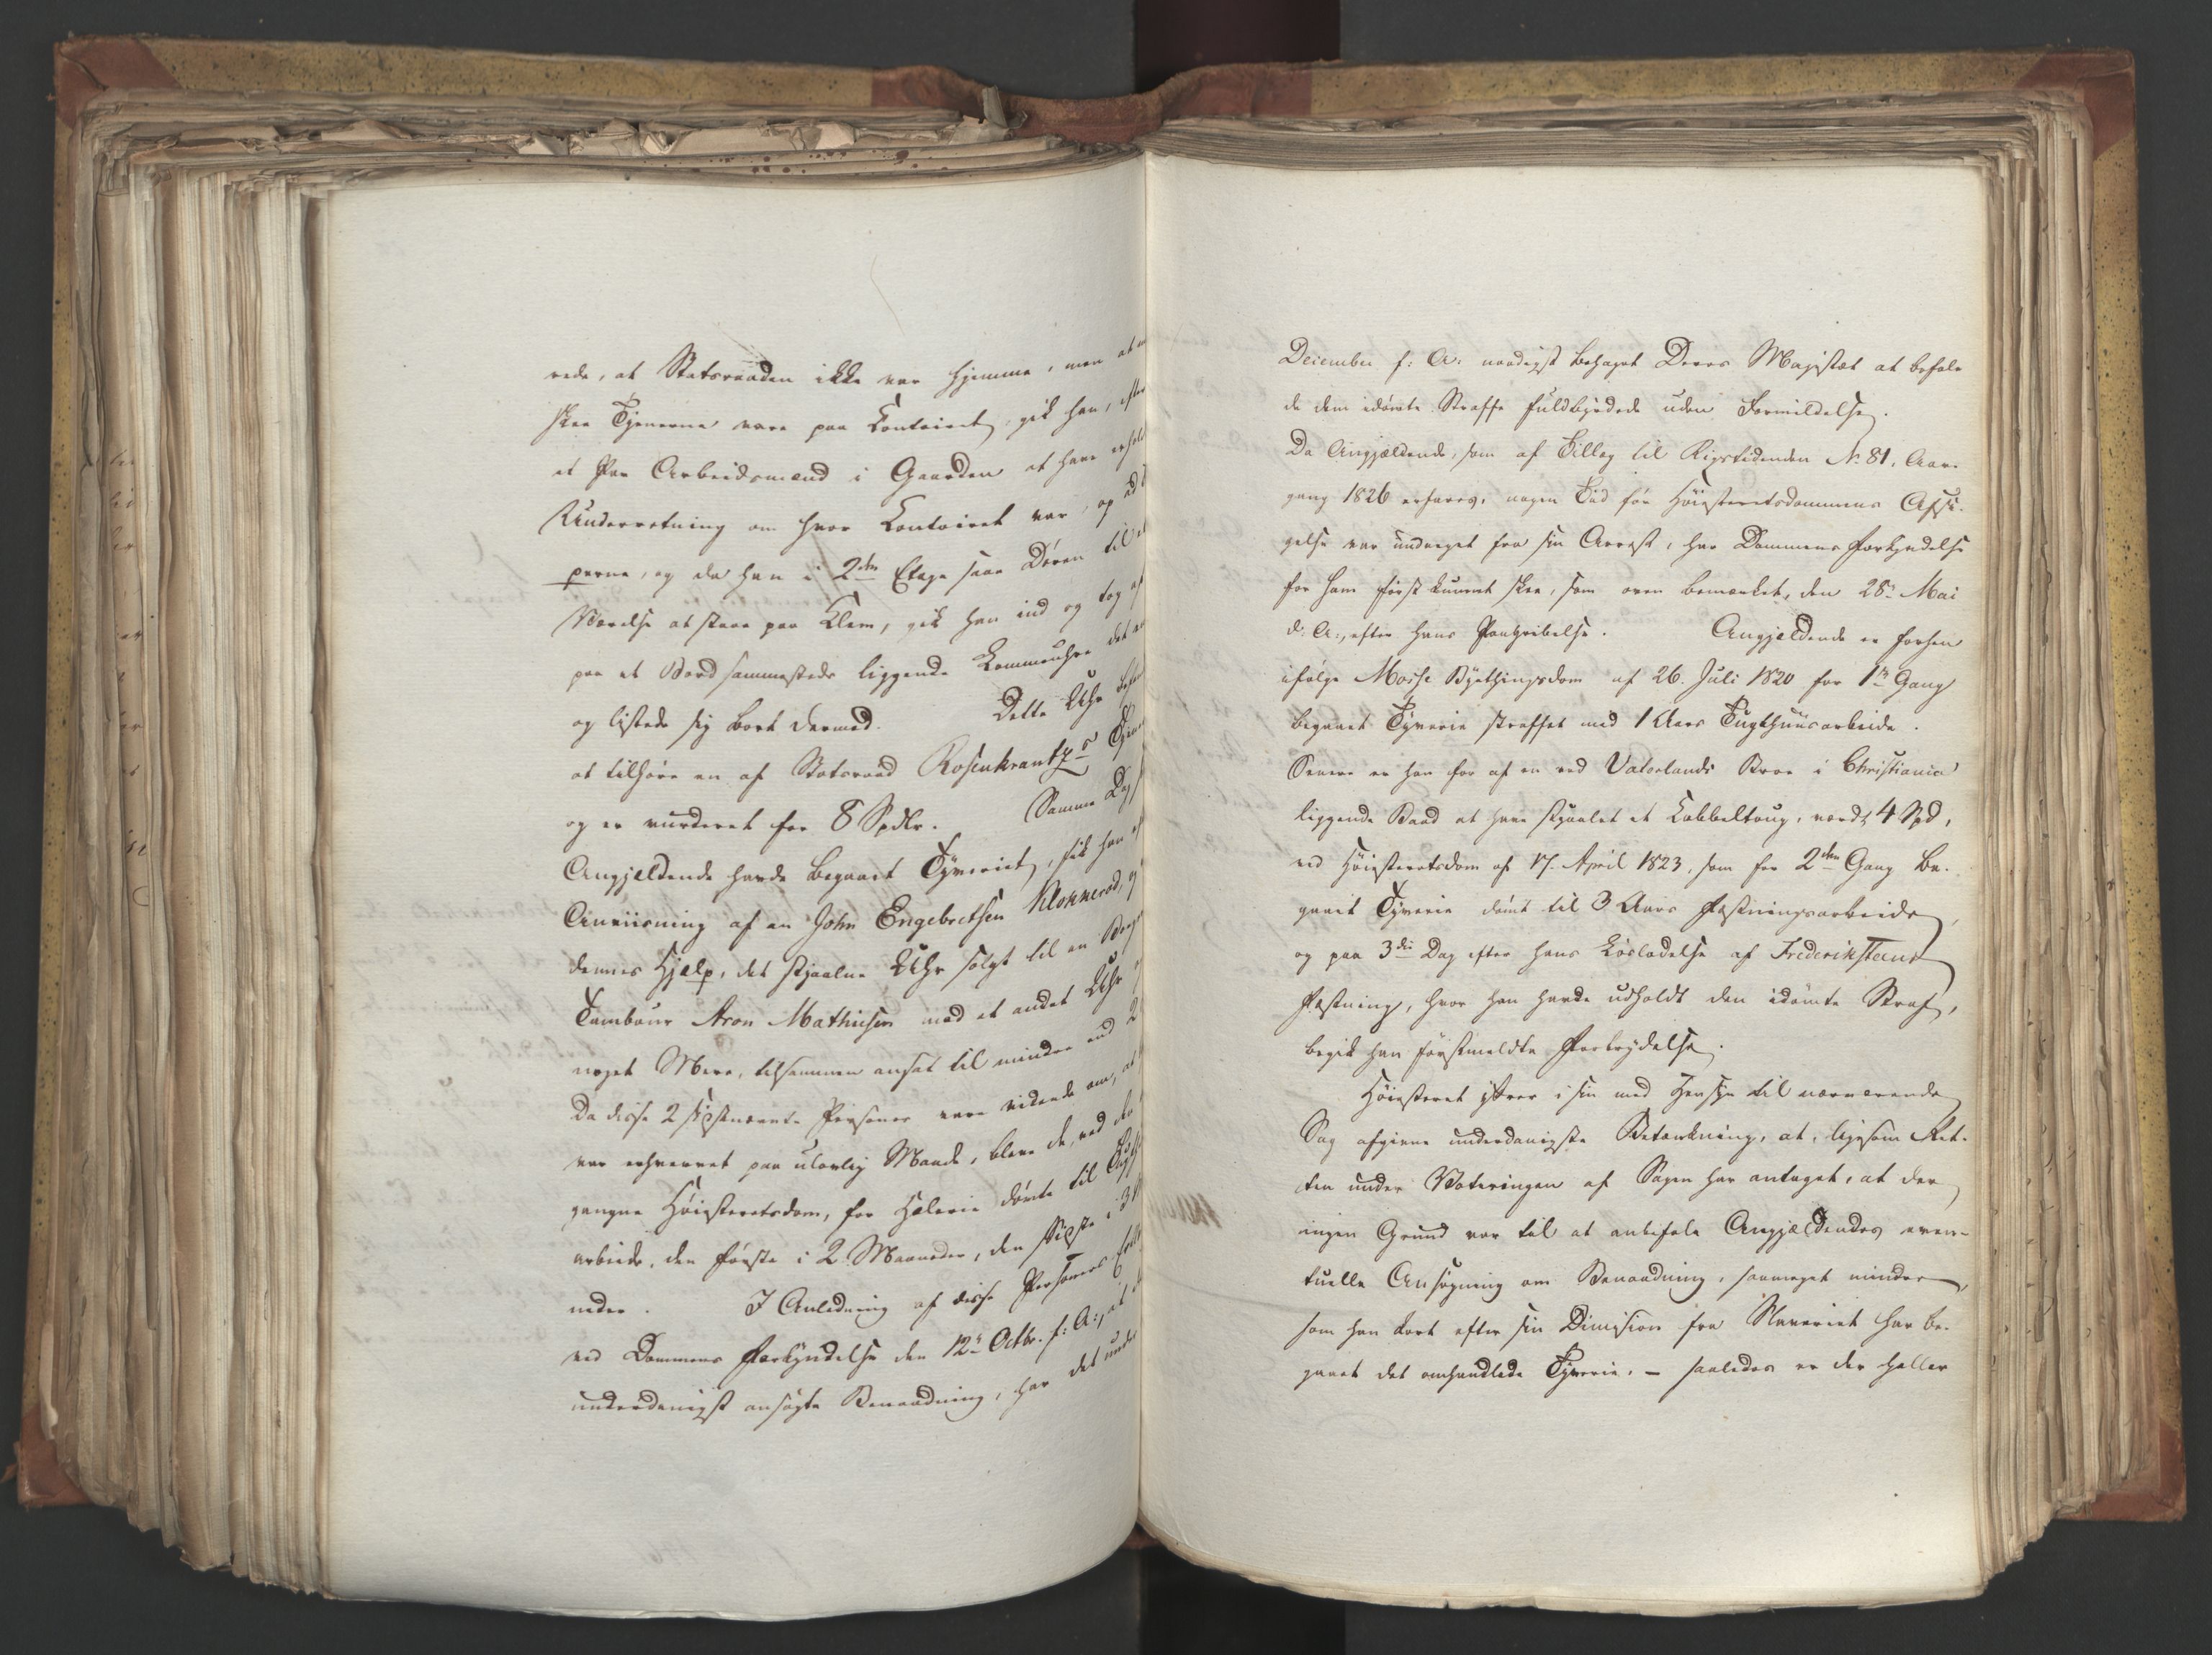 rede, at Statsraaden ikke var hjemme, men at
skee Tjenerne vare paa Contoiret, gik han, efter
et Par Arbeidsmænd i Gaarden at have erhol
Underretning om hvor Contoiret var, op ad
perne, og da han i 2den Etage saae Døren til et
Værelse at staae paa Klem, gik han ind og tog af
paa et Bord sammesteds liggende Lommeuhr
og listede sig bort dermed. Dette Uhr
at tilhøre en af Statsraad Rosenkrantz's Tjen
og er vurderet for 8 Spdlr. Samme Dag
Angjeldende havde begaaet Tyveriet, fik han
Anviisning af en John Engebretsen Klokkerød, og
dennes Hjælp, det stjaalne Uhr solgt til en
Tambour Aron Mathiesen mod et andet Uhr
noget Mere, tilsammen ansat til mindre end 2
Da disse 2 sidstnævnte Personer vare vidende om, at
var erhvervet paa ulovlig Maade, bleve de, ved
gangne Høiesteretsdom, for Hæleri dømte til Tugt
arbeide, den første i 2 Maaneder, den sidste i 3
neder. I Anledning af disse Personers
ved Dommens Forkyndelse den 12te Octbr. f: A:, at
underdanigst ansøgte Benaadning, har det under
December f: A: naadigst behaget Deres Majestæt at befale
de dem idømte Straffe fuldbyrdede uden Formildelse.
Da Angjældende, som af Tillæg til Rigstidenden No 81, Aar-
gang 1826 erfares, nogen Tid før Høiesteretsdommens Afsi-
gelse var undveget fra sin Arrest, har Dommens Forkyndelse
for ham først kunnet skee, som oven bemærket, den 28de Mai
d: A:, efter hans Paagribelse. Angjeldende er forhen
ifølge Mosse Byethingsdom af 26. Juli 1820 for 1ste Gang
begaaet Tyverie straffet med 1 Aars Tugthuusarbeide.
Senere er han for af en ved Vaterlands Broe i Christiania
liggende Baad at have stjaalet et Cabbeltoug, værdt 4 Spd,
ved Høiesteretsdom af 17. April 1823, som for 2den Gang be-
gaaet Tyverie dømt til 3 Aars Fæstningsarbeide,
og paa 3die Dag efter hans Løsladelse af Frederiksteens
Fæstning, hvor han havde udholdt den idømte Straf,
begik han førstmeldte Forbrydelse.
Høiesteret yttrer i sin med Hensyn til nærværende
Sag afgivne underdanigste Betænkning, at, ligesom Ret-
ten under Voteringen af Sagen har antaget, at der
ingen Grund var til at anbefale Angjældendes even-
tuelle Ansøgning om Benaadning, saameget mindre,
som han kort efter sin Dimission fra Slaveriet har be-
gaaet det omhandlede Tyverie, - saaledes er der heller